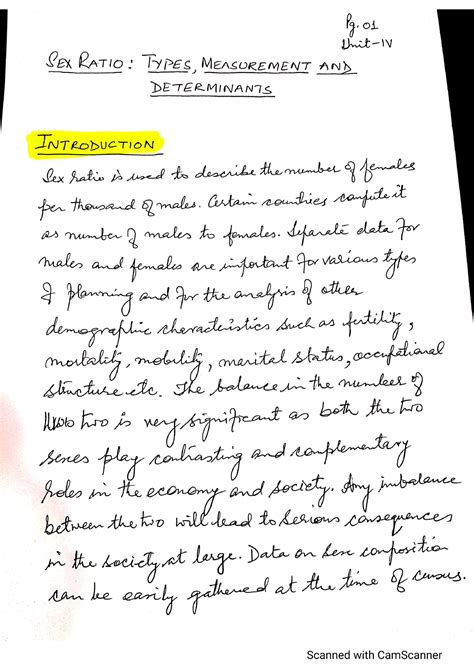 Pg. 01
Unit-IV
SEX RATIO: TYPES, MEASUREMENT AND
DETERMINANTS
INTRODUCTION
Sex ratio is used to describe the number of females
per thousand of males. Certain countries compute it
as number of males to females. Separate data for
males and females are important for various types
of planning and for the analysis of other
demographic characteristics such as fertility,
mortality, mobility, marital status, occupational
structure etc. The balance in the number of
two is very significant as both the two
sexes play contrasting and complementary
roles in the economy and society. Any imbalance
between the two will lead to serious consequences
in the society at large. Data on sex composition
can be easily gathered at the time of census.
Scanned with CamScanner